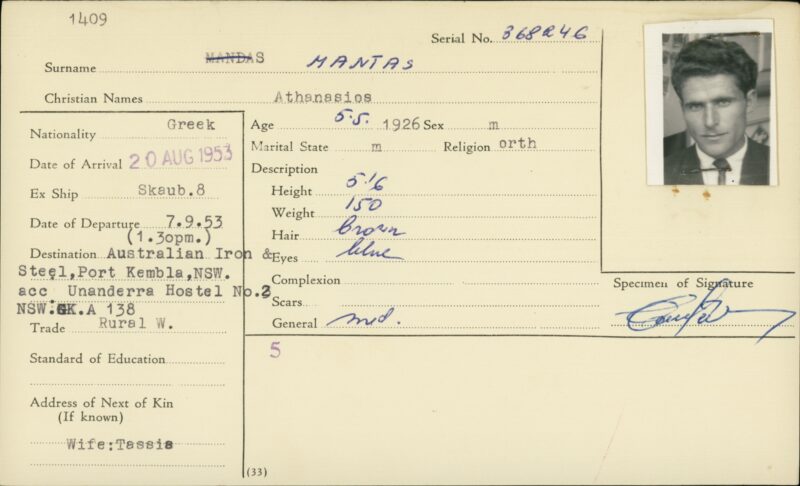 1409
Serial No. 368246
Surname MANDAS MANTAS
Christian Names Athanasios
Nationality Greek
Date of Arrival 20 AUG 1953
Ex Ship Skaub.8
Date of Departure 7.9.53
(1.30pm.)
Destination Australian Iron &
Steel,Port Kembla,NSW.
acc Unanderra Hostel No.2
NSW: GK.A 138
Trade Rural W.
Standard of Education
Address of Next of Kin
(If known)
Wife:Tassia
Age 5.5. 1926 Sex m
Marital State m Religion orth
Description
Height 5'6
Weight 150
Hair brown
Eyes blue
Complexion
Scars
General med.
5
(33)
Specimen of Signature